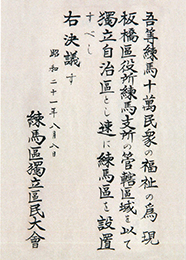 吾等練馬十萬民衆の福祉の爲現
板橋區役所練馬支所の管轄區域を以て
獨立自治區とし速に練馬區を設置
すべし
右決議す
昭和二十一年八月八日
練馬區獨立區民大會